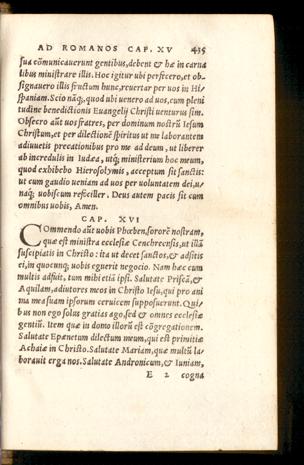 AD ROMANOS CAP. XV 435
sua cõmunicauerunt gentibus, debent & hæ in carna
libus ministrare illis. Hoc igitur ubi perfecero, et ob-
signauero illis fructum hunc, reuertar per uos in Hi-
spaniam. Scio nãq;, quod ubi uenero ad uos, cum pleni
tudine benedictionis Euangelij Christi uenturus sim.
Obsecro aũt uos fratres, per dominum nostrũ Iesum
Christum, et per dilectionẽ spiritus ut me laborantem
adiuuetis precationibus pro me ad deum, ut liberer
ab incredulis in Iudæa, utq; ministerium hoc meum,
quod exhibebo Hierosolymis, acceptum sit sanctis:
ut cum gaudio ueniam ad uos per uoluntatem dei, u-
naq; uobiscum refociller. Deus autem pacis sit cum
omnibus uobis, Amen.
CAP. XVI
COmmendo aũt uobis Phœben, sororẽ nostram,
quæ est ministra ecclesiæ Cenchrensis, ut illã
suscipiatis in Christo: ita ut decet sanctos, & adsitis
ei, in quocunq; uobis eguerit negocio. Nam hæc cum
multis adfuit, tum mihi etiã ipsi. Salutate Priscã, &
Aquilam, adiutores meos in Christo Iesu, qui pro ani
ma mea suam ipsorum ceruicem supposuerunt. Qui-
bus non ego solus gratias ago, sed & omnes ecclesiæ
gentiũ. Item quæ in domo illorũ est cõgregationem.
Salutate Epænetum dilectum meum, qui est primitiæ
Achaiæ in Christo. Salutate Mariam, quæ multũ la-
borauit erga nos. Salutate Andronicum, & Iuniam,
E 2 cogna